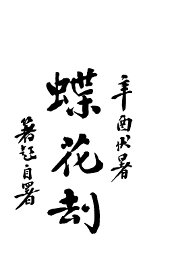 辛酉伏暑
蝶花劫
箸超自署